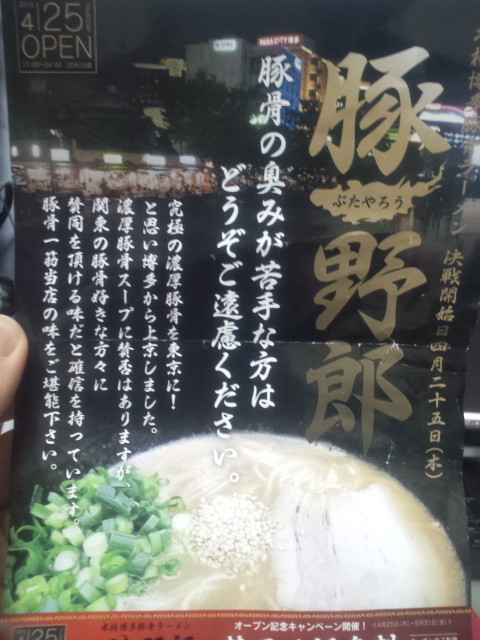 2013
4 25
OPEN
PARACITY博多
豚野郎
ぶたやろう
決戦開始日四月二十五日(木)
豚骨の臭みが苦手な方は
どうぞご遠慮ください。
究極の濃厚豚骨を東京に!
と思い博多から上京しました。
濃厚豚骨スープに賛否はありますが、
関東の豚骨好きな方々に
賛同を頂ける味だと確信を持っています。
豚骨一筋当店の味をご堪能下さい。
25
本格博多豚骨ラーメン
オープン記念キャンペーン開催!
<4月25日(木)~5月31日(金)>